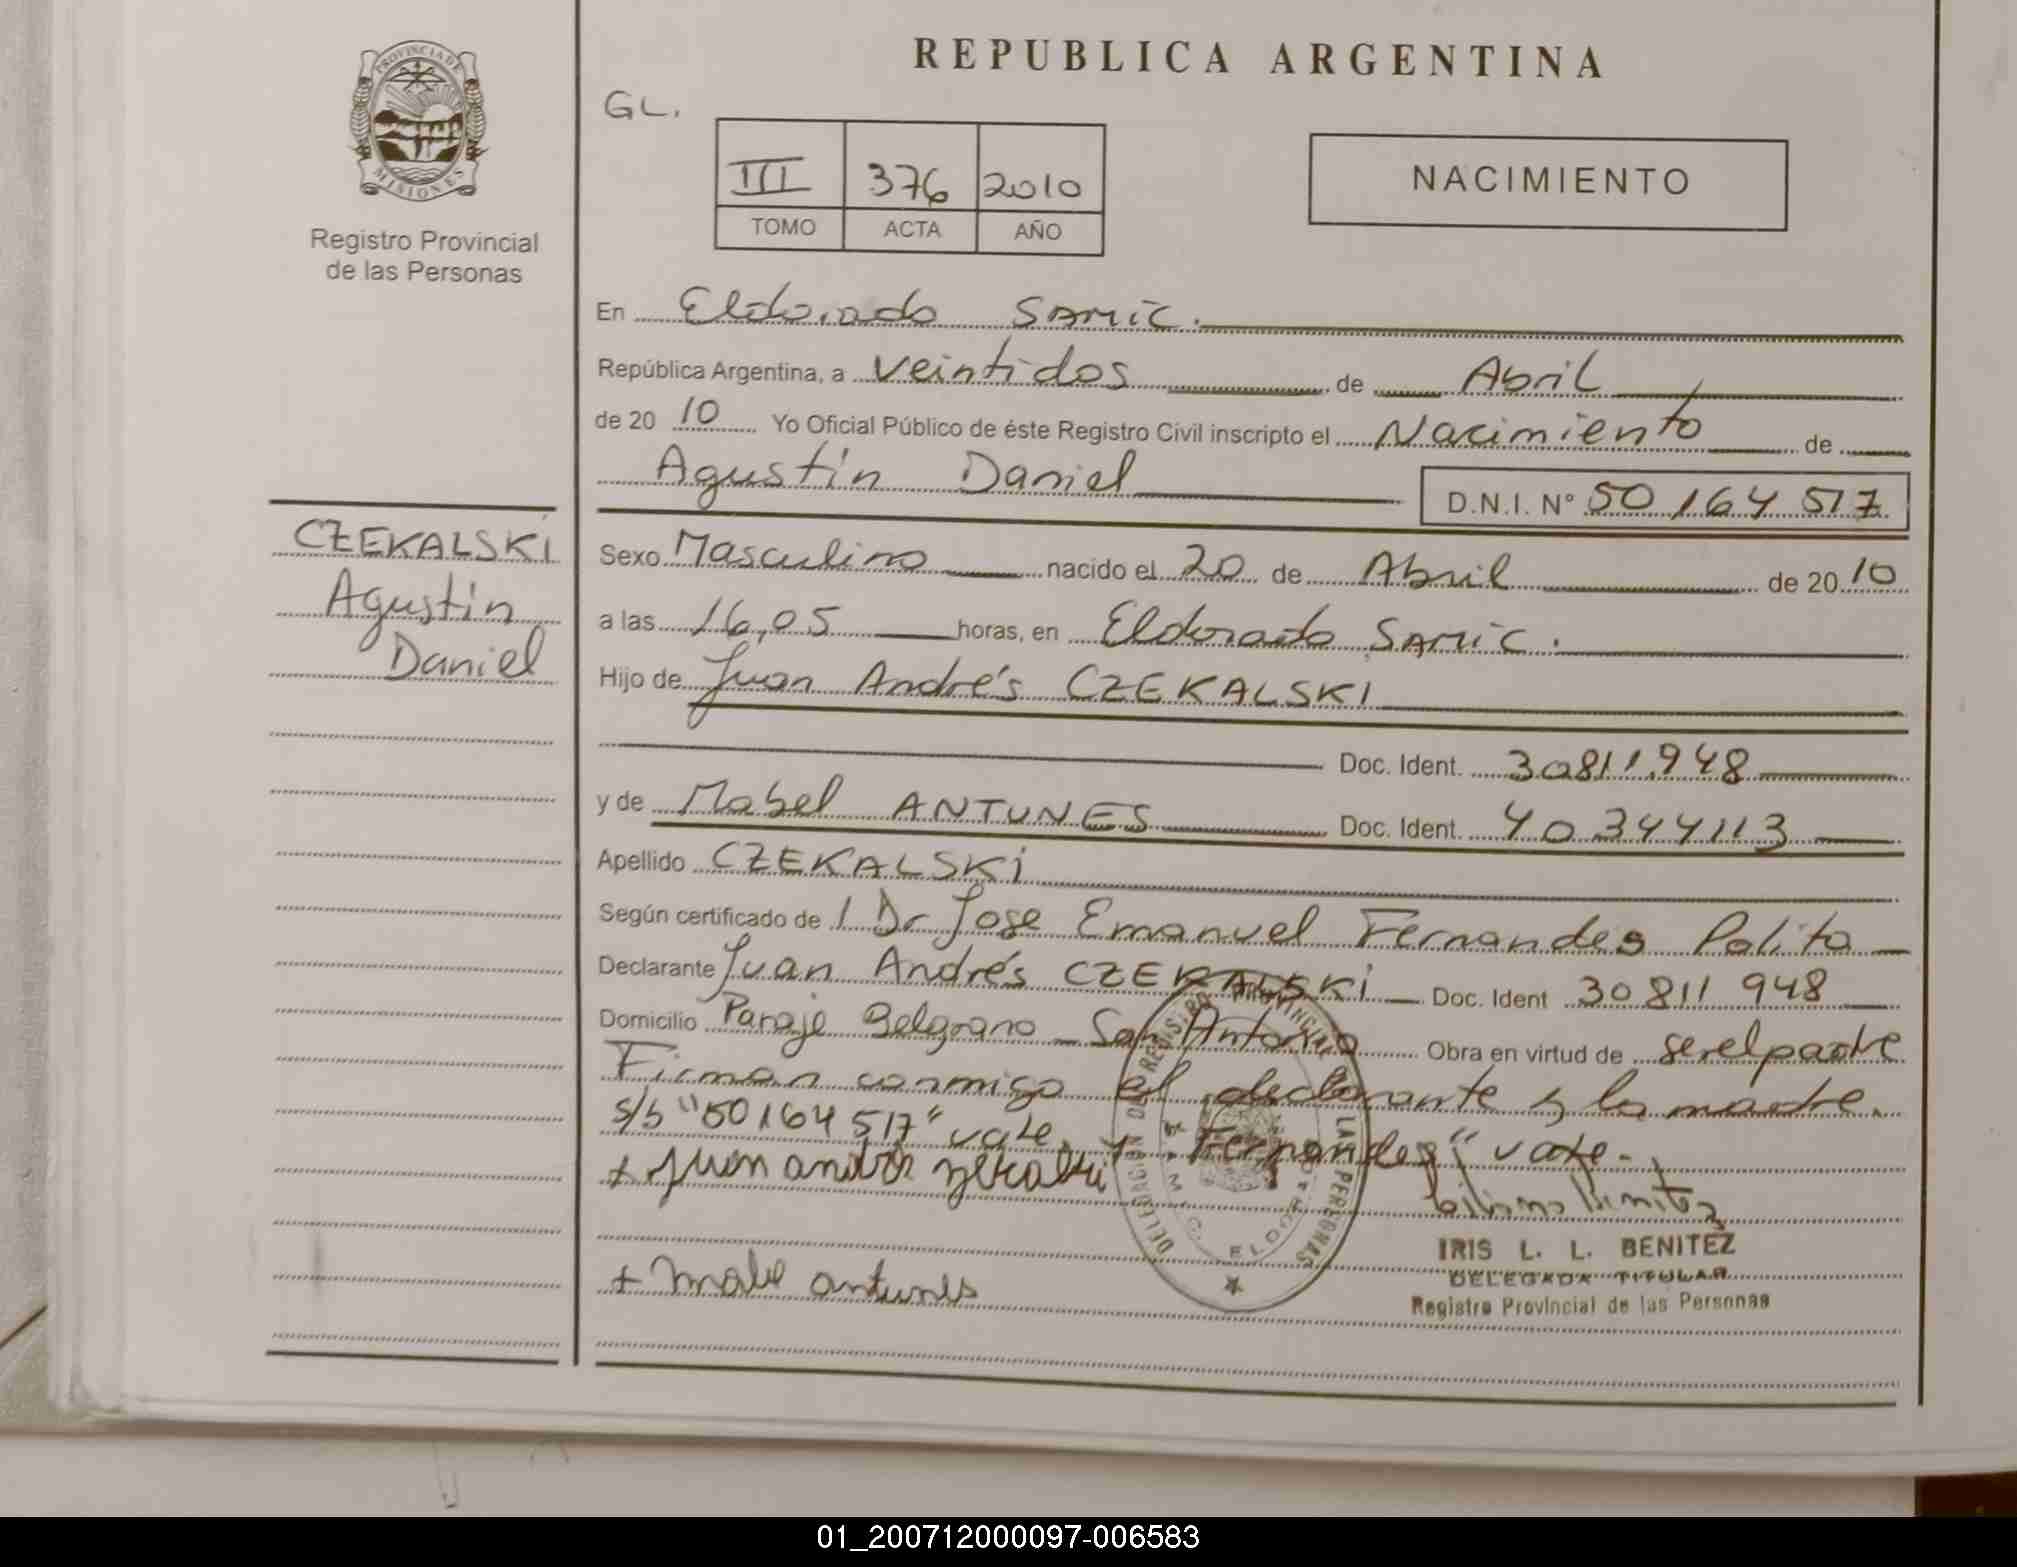 REPUBLICA ARGENTINA
PROVINCIA DE
MISIONES
Registro Provincial
de las Personas
GL.
III 376 2010
TOMO ACTA AÑO
NACIMIENTO
En Eldorado SAMIC.
República Argentina, a veintidos de Abril
de 2010 Yo Oficial Público de éste Registro Civil inscripto el Nacimiento de
Agustín Daniel D.N.I. Nº 50 164 517
CZEKALSKI
Agustín
Daniel
Sexo Masculino nacido el 20 de Abril de 2010
a las 16,05 horas, en Eldorado SAMIC.
Hijo de Juan Andrés CZEKALSKI
Doc. Ident. 30811.948
y de Mabel ANTUNES Doc. Ident. 40344113
Apellido CZEKALSKI
Según certificado de 1 Dr Jose Emanuel Fernandes Polito
Declarante Juan Andrés CZEKALSKI Doc. Ident 30811 948
Domicilio Paraje Belgrano San Antonio Obra en virtud de ser el padre
Firman conmigo el declarante y la madre.
s/b "50164517" vale, y Fernandes" vale.
+ Juan
+ Mabe antunes
DELEGACION DE REGISTRO PROVINCIAL DE LAS PERSONAS
S.A.M.I.C. ELDORADO
IRIS L. L. BENITEZ
DELEGADA TITULAR
Registro Provincial de las Personas
01_200712000097-006583